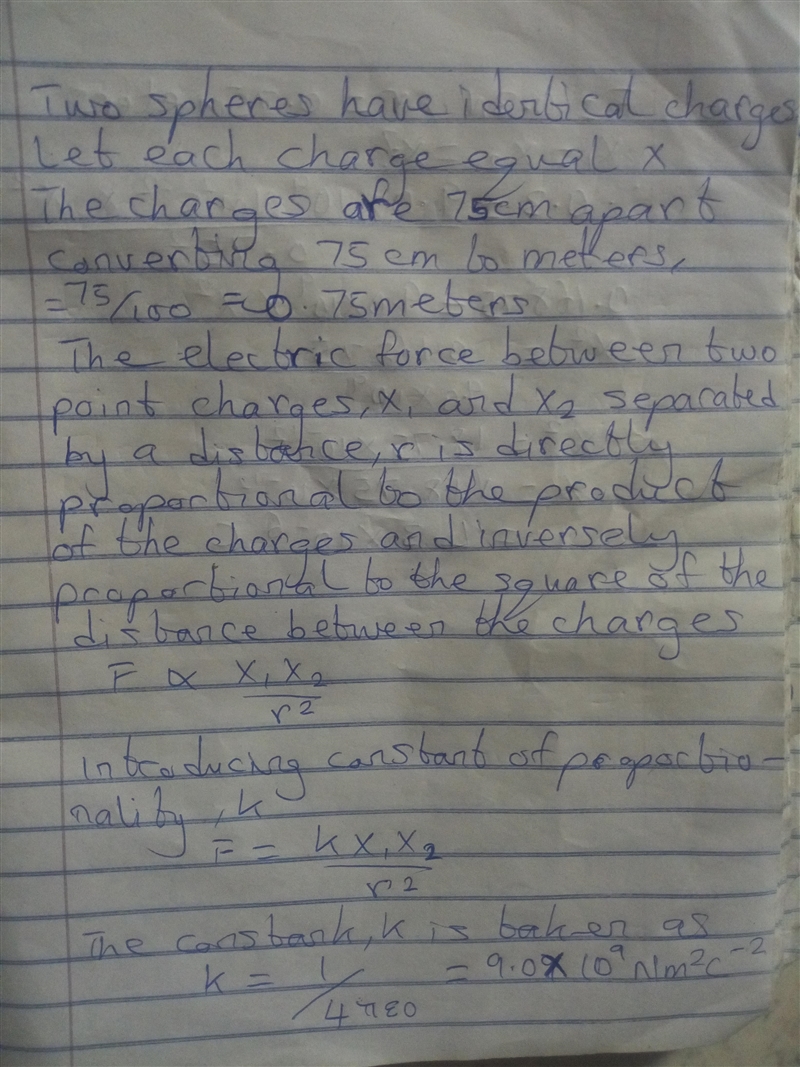 Two spheres have identical charges
Let each charge equal x
The charges are 75cm apart
converting 75 cm to meters,
= 75/100 = 0.75meters
The electric force between two
point charges, x₁ and x₂ separated
by a distance, r is directly
proportional to the product
of the charges and inversely
proportional to the square of the
distance between the charges
F ∝ x₁x₂/r²
introducing constant of proportio-
nality, k
F = kx₁x₂/r²
The constant, k is taken as
k = 1/4πε0 = 9.0x10⁹Nm²c⁻²